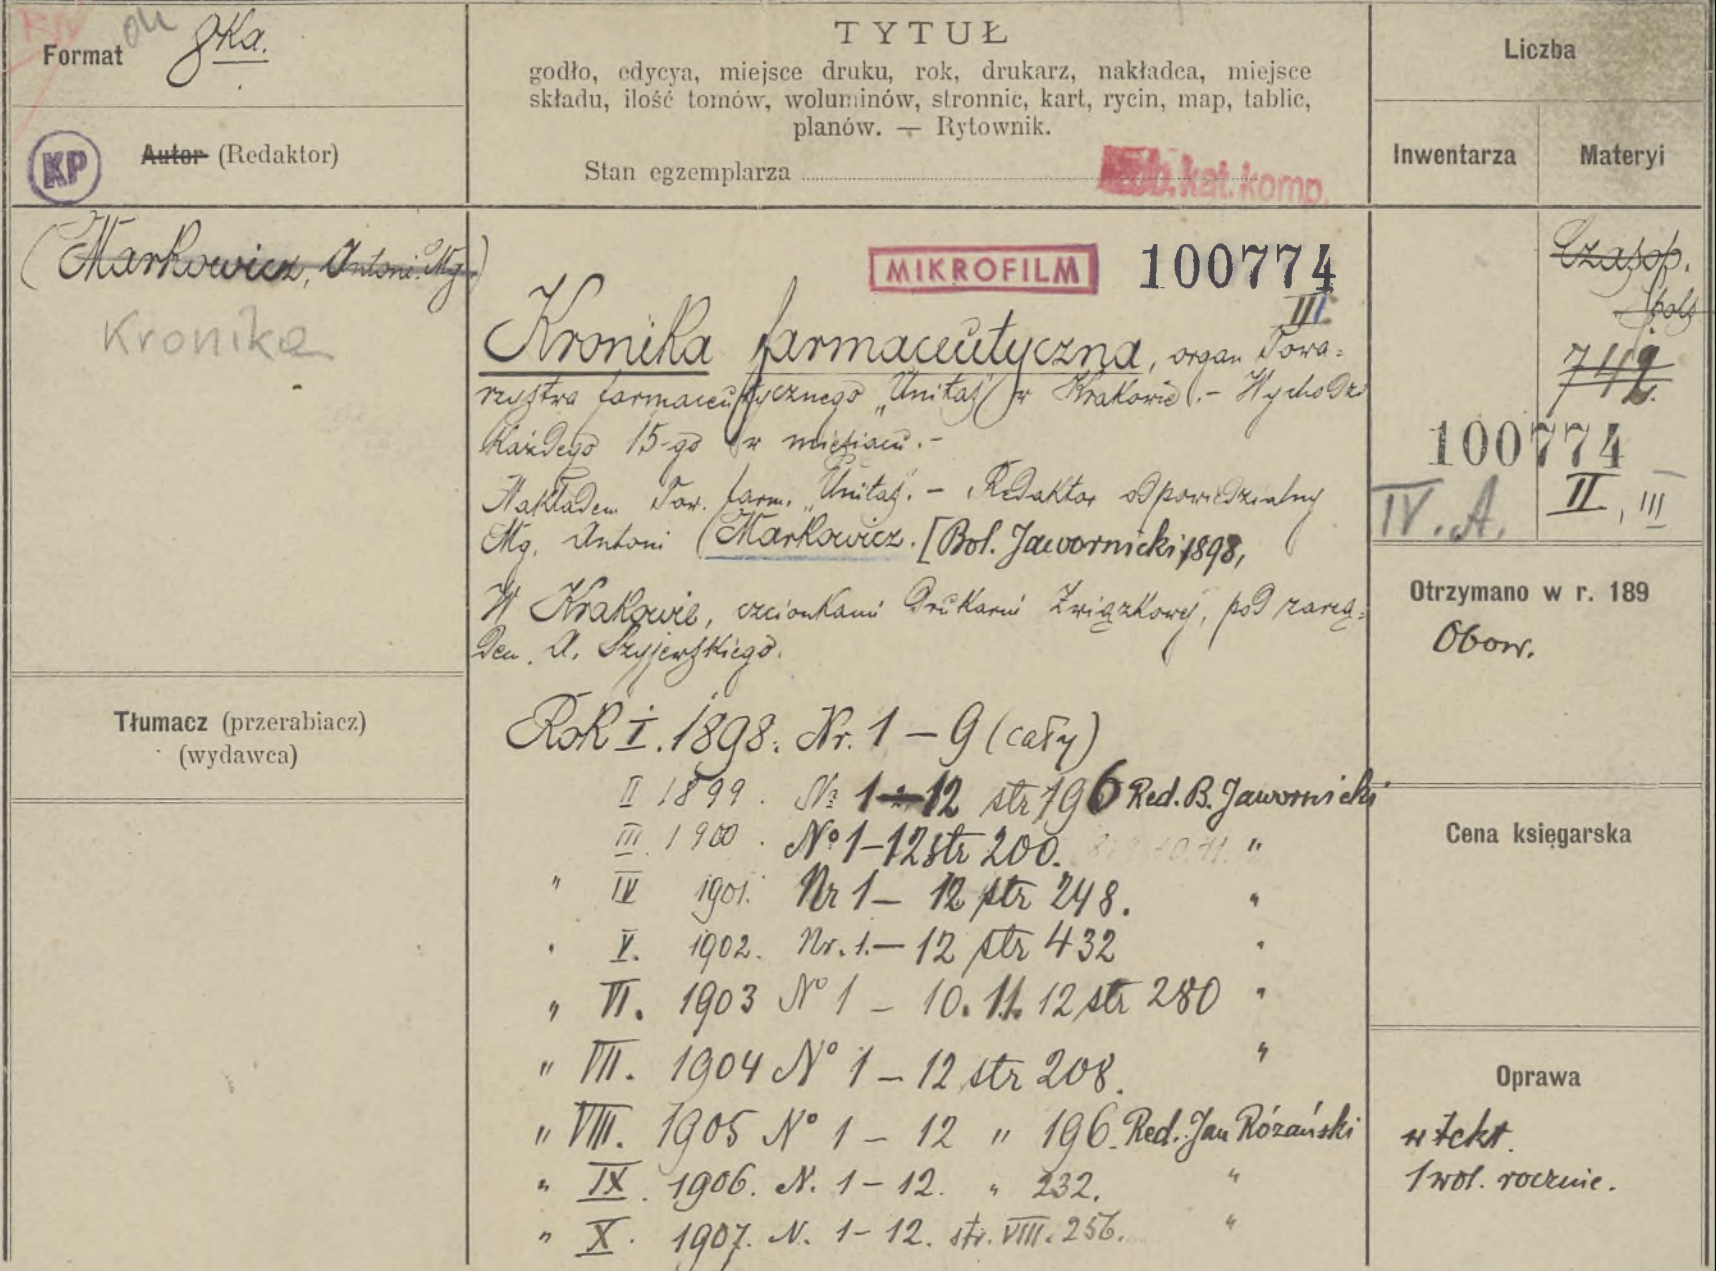 Format 8ka.
TYTUŁ
godło, edycya, miejsce druku, rok, drukarz, nakładca, miejsce
składu, ilość tomów, woluminów, stronnic, kart, rycin, map, tablic,
planów. — Rytownik.
Stan egzemplarza
kat. komp.
Liczba
Inwentarza
Materyi
KP
Autor (Redaktor)
(Markowicz, Antoni. Mg.)
Kronika
MIKROFILM 100774
III
Kronika farmaceutyczna, organ Towa=
rzystwa farmaceutycznego „Unitas" w Krakowie. - Wychodzi
każdego 15-go w miesiącu. -
Nakładem Tow. farm. „Unitas". - Redaktor odpowiedzialny
Mg. Antoni Markowicz. [Bol. Jawornicki 1898,
W Krakowie, czcionkami Drukarni Związkowej, pod zarzą=
dem A. Szyjewskiego.
Rok I. 1898. Nr. 1 – 9 (cały)
II 1899. No 1–12 str 196 Red. B. Jawornicki
III. 1900. No 1–12 str 200. "
" IV 1901. Nr 1 – 12 str 248. "
" V. 1902. Nr. 1. – 12 str 432 "
" VI. 1903 No 1 – 10. 11. 12 str 280 "
" VII. 1904 No 1 – 12 str 208. "
" VIII. 1905 No 1 – 12 " 196. Red. Jan Różański
" IX. 1906. N. 1 – 12. " 232. "
" X. 1907. N. 1 – 12. str. VIII. 256. "
Czasop.
pols
742.
100774
II, III
IV. A.
Otrzymano w r. 189
Obow.
Cena księgarska
Oprawa
w tekt.
1 wol. rocznie.
Tłumacz (przerabiacz)
(wydawca)